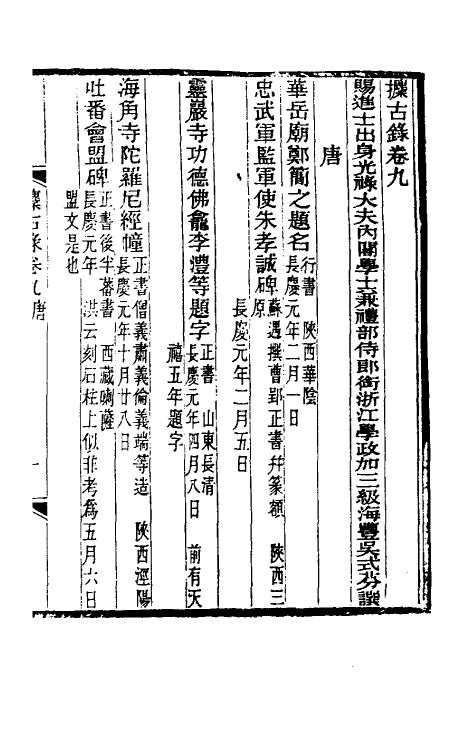 攈古錄卷九
賜進士出身光祿大夫內閣學士兼禮部侍郎銜浙江學政加三級海豐吳式芬譔
唐
華岳廟鄭簡之題名 行書 陝西華陰
長慶元年二月一日
忠武軍監軍使朱孝誠碑 蘇遇撰曹郢正書并篆額 陝西三
原
長慶元年二月五日
靈巖寺功德佛龕李灃等題字 正書 山東長清
長慶元年四月八日 前有天
禧五年題字
海角寺陀羅尼經幢 正書僧義肅義倫義端等造 陝西涇陽
長慶元年十月廿八日
吐番會盟碑 正書後半蕃書 西藏喇薩
長慶元年 洪云刻石柱上似非考為五月六日
盟文是也
攈古錄卷九唐
一